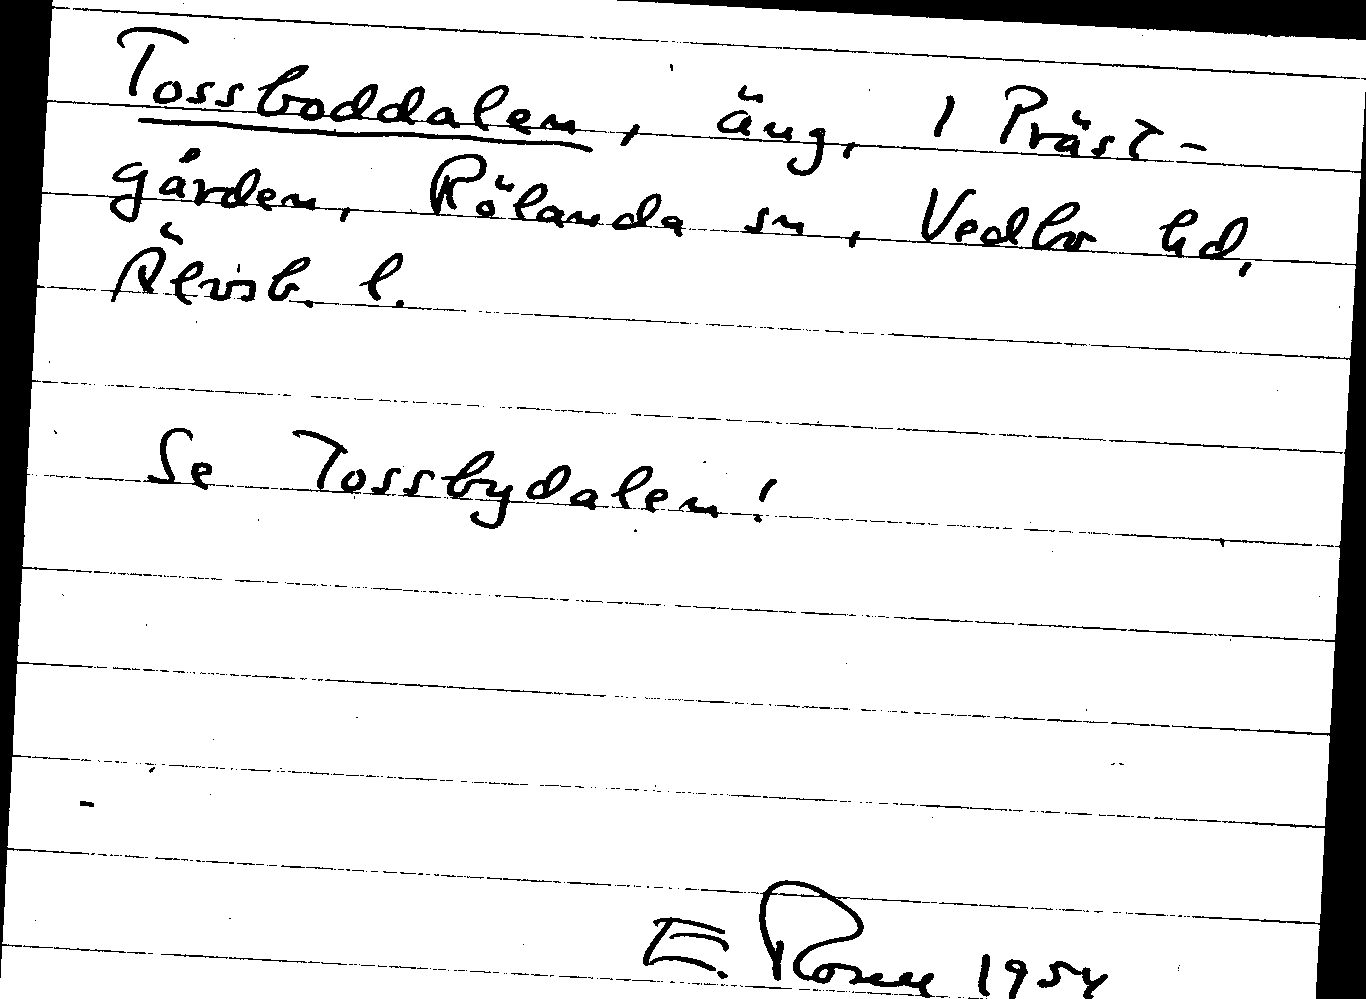 Tossboddalen, äng, 1 Präst-
gården, Rölanda sn, Vedbo hd,
Älvsb. l.
Se Tossbydalen!
E. Rosell 1954